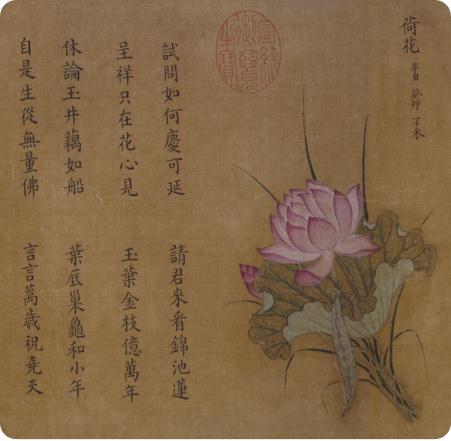 荷花 辛丑 癸卯 丁未
宣統御覽之寶
試問如何慶可延 請君來看錦池蓮
呈祥只在花心見 玉葉金枝億萬年
休論玉井藕如船 葉底巢龜和小年
自是生從無量佛 言言萬歲祝堯天